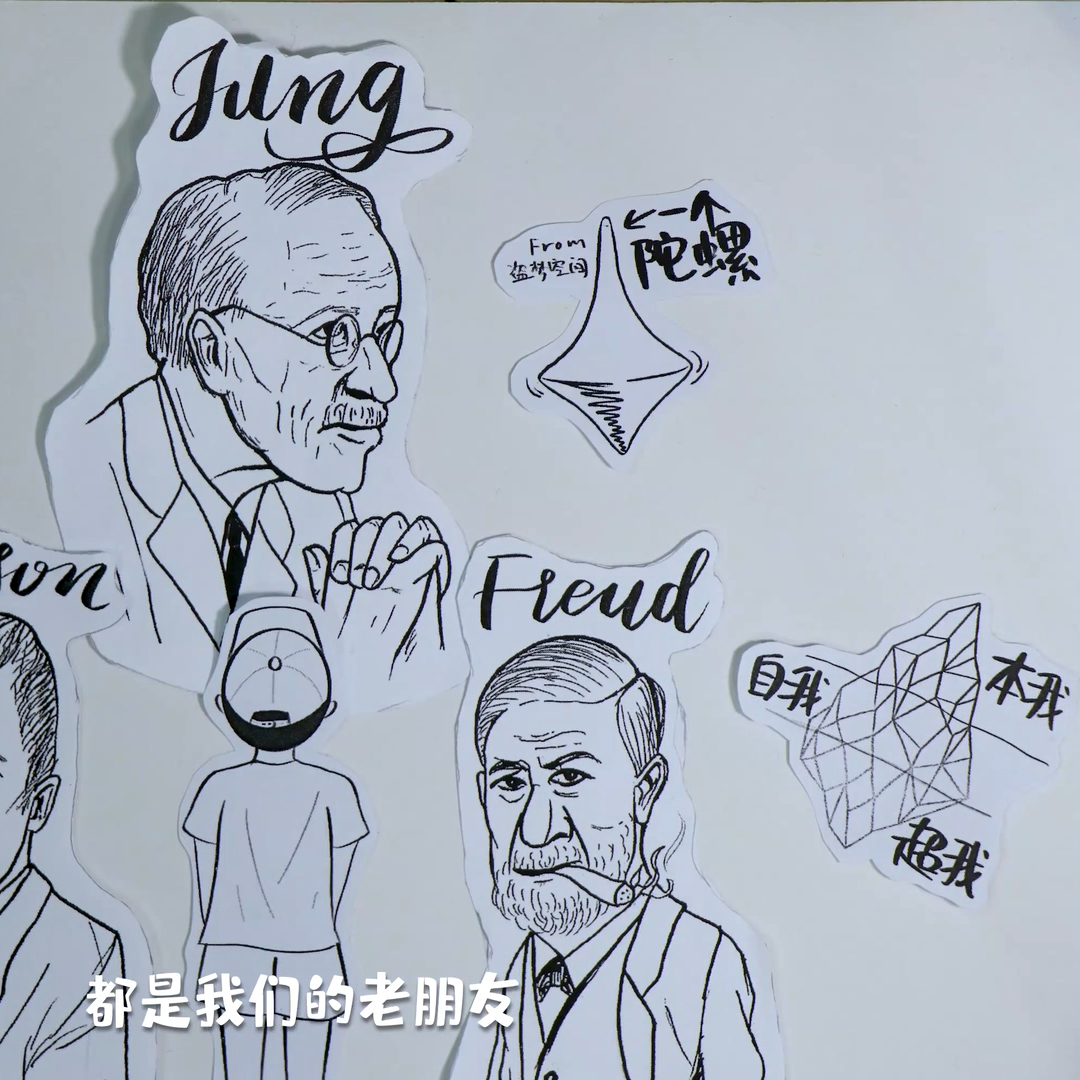 Jung
←一个
From
陀螺
盗梦空间
son
Freud
自我
本我
超我
都是我们的老朋友